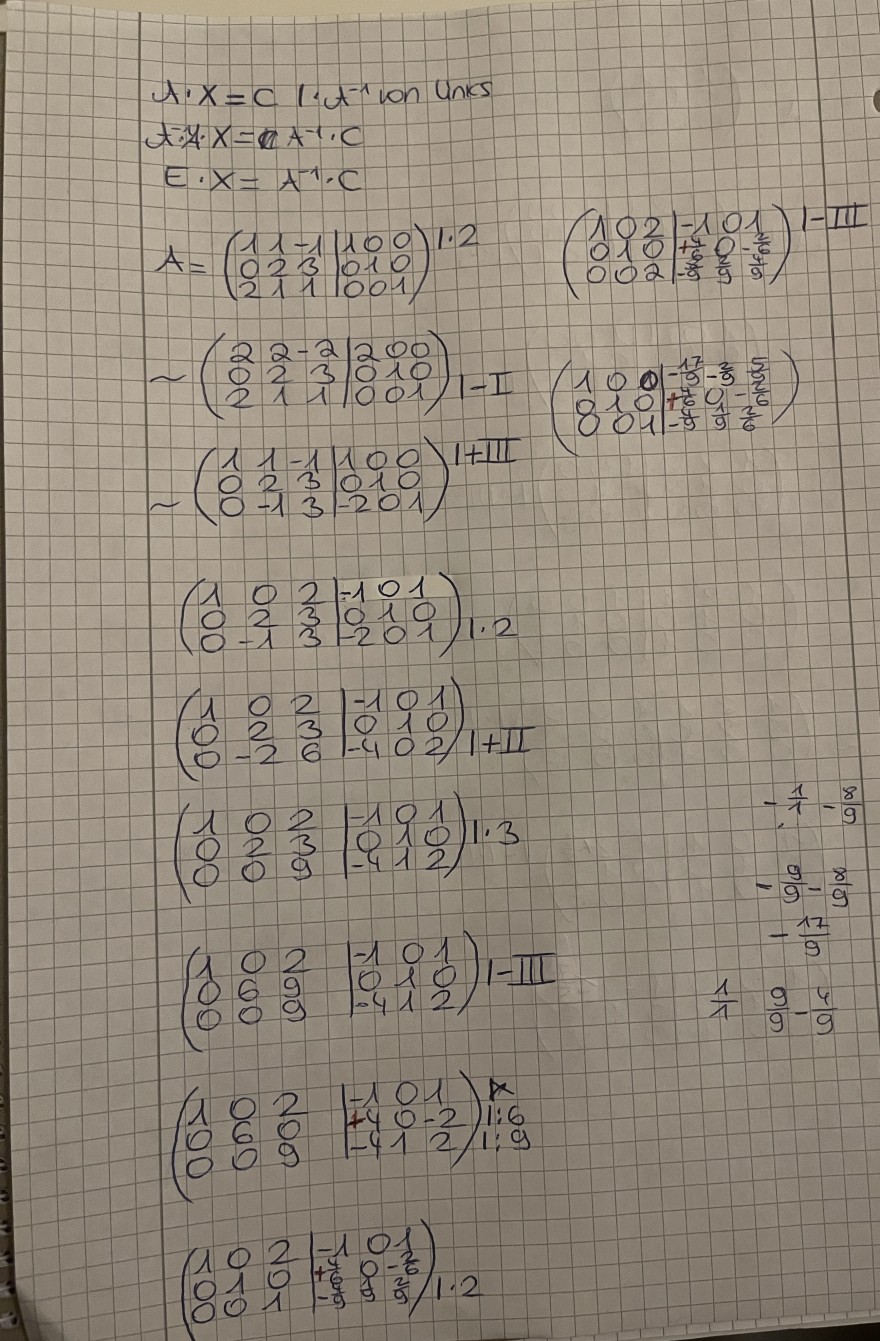 A·X=C |·A⁻¹ von links
A⁻¹·A·X= A⁻¹·C
E·X= A⁻¹·C
A= (1 1 -1 | 1 0 0) |·2
(0 2 3 | 0 1 0)
(2 1 1 | 0 0 1)
~ (2 2 -2 | 2 0 0)
(0 2 3 | 0 1 0)
(2 1 1 | 0 0 1) |-I
~ (1 1 -1 | 1 0 0) |+III
(0 2 3 | 0 1 0)
(0 -1 3 | -2 0 1)
(1 0 2 | -1 0 1)
(0 2 3 | 0 1 0)
(0 -1 3 | -2 0 1) |·2
(1 0 2 | -1 0 1)
(0 2 3 | 0 1 0)
(0 -2 6 | -4 0 2) |+II
(1 0 2 | -1 0 1)
(0 2 3 | 0 1 0) |·3
(0 0 9 | -4 1 2)
(1 0 2 | -1 0 1)
(0 6 9 | 0 1 0) |-III
(0 0 9 | -4 1 2)
(1 0 2 | -1 0 1)
(0 6 0 | +4 0 -2) |:6
(0 0 9 | -4 1 2) |:9
(1 0 2 | -1 0 1)
(0 1 0 | +4/6 0 -2/6)
(0 0 1 | -4/9 2/9) |·2
(1 0 2 | -1 0 1) |-III
(0 1 0 | +4/6 0 -2/6)
(0 0 2 | -8/9 2/9 4/9)
(1 0 0 | -17/9 -2/9 5/9)
(0 1 0 | +4/6 0 -2/6)
(0 0 1 | -4/9 1/9)
-1/1 -8/9
-9/9 -8/9
-17/9
1/1 9/9 -4/9